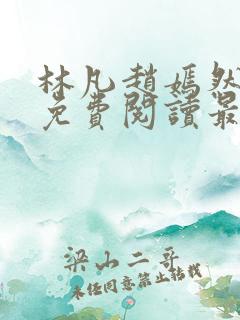 林凡趙嫣然
免費閱讀最
梁山二哥
未经同意禁止转载